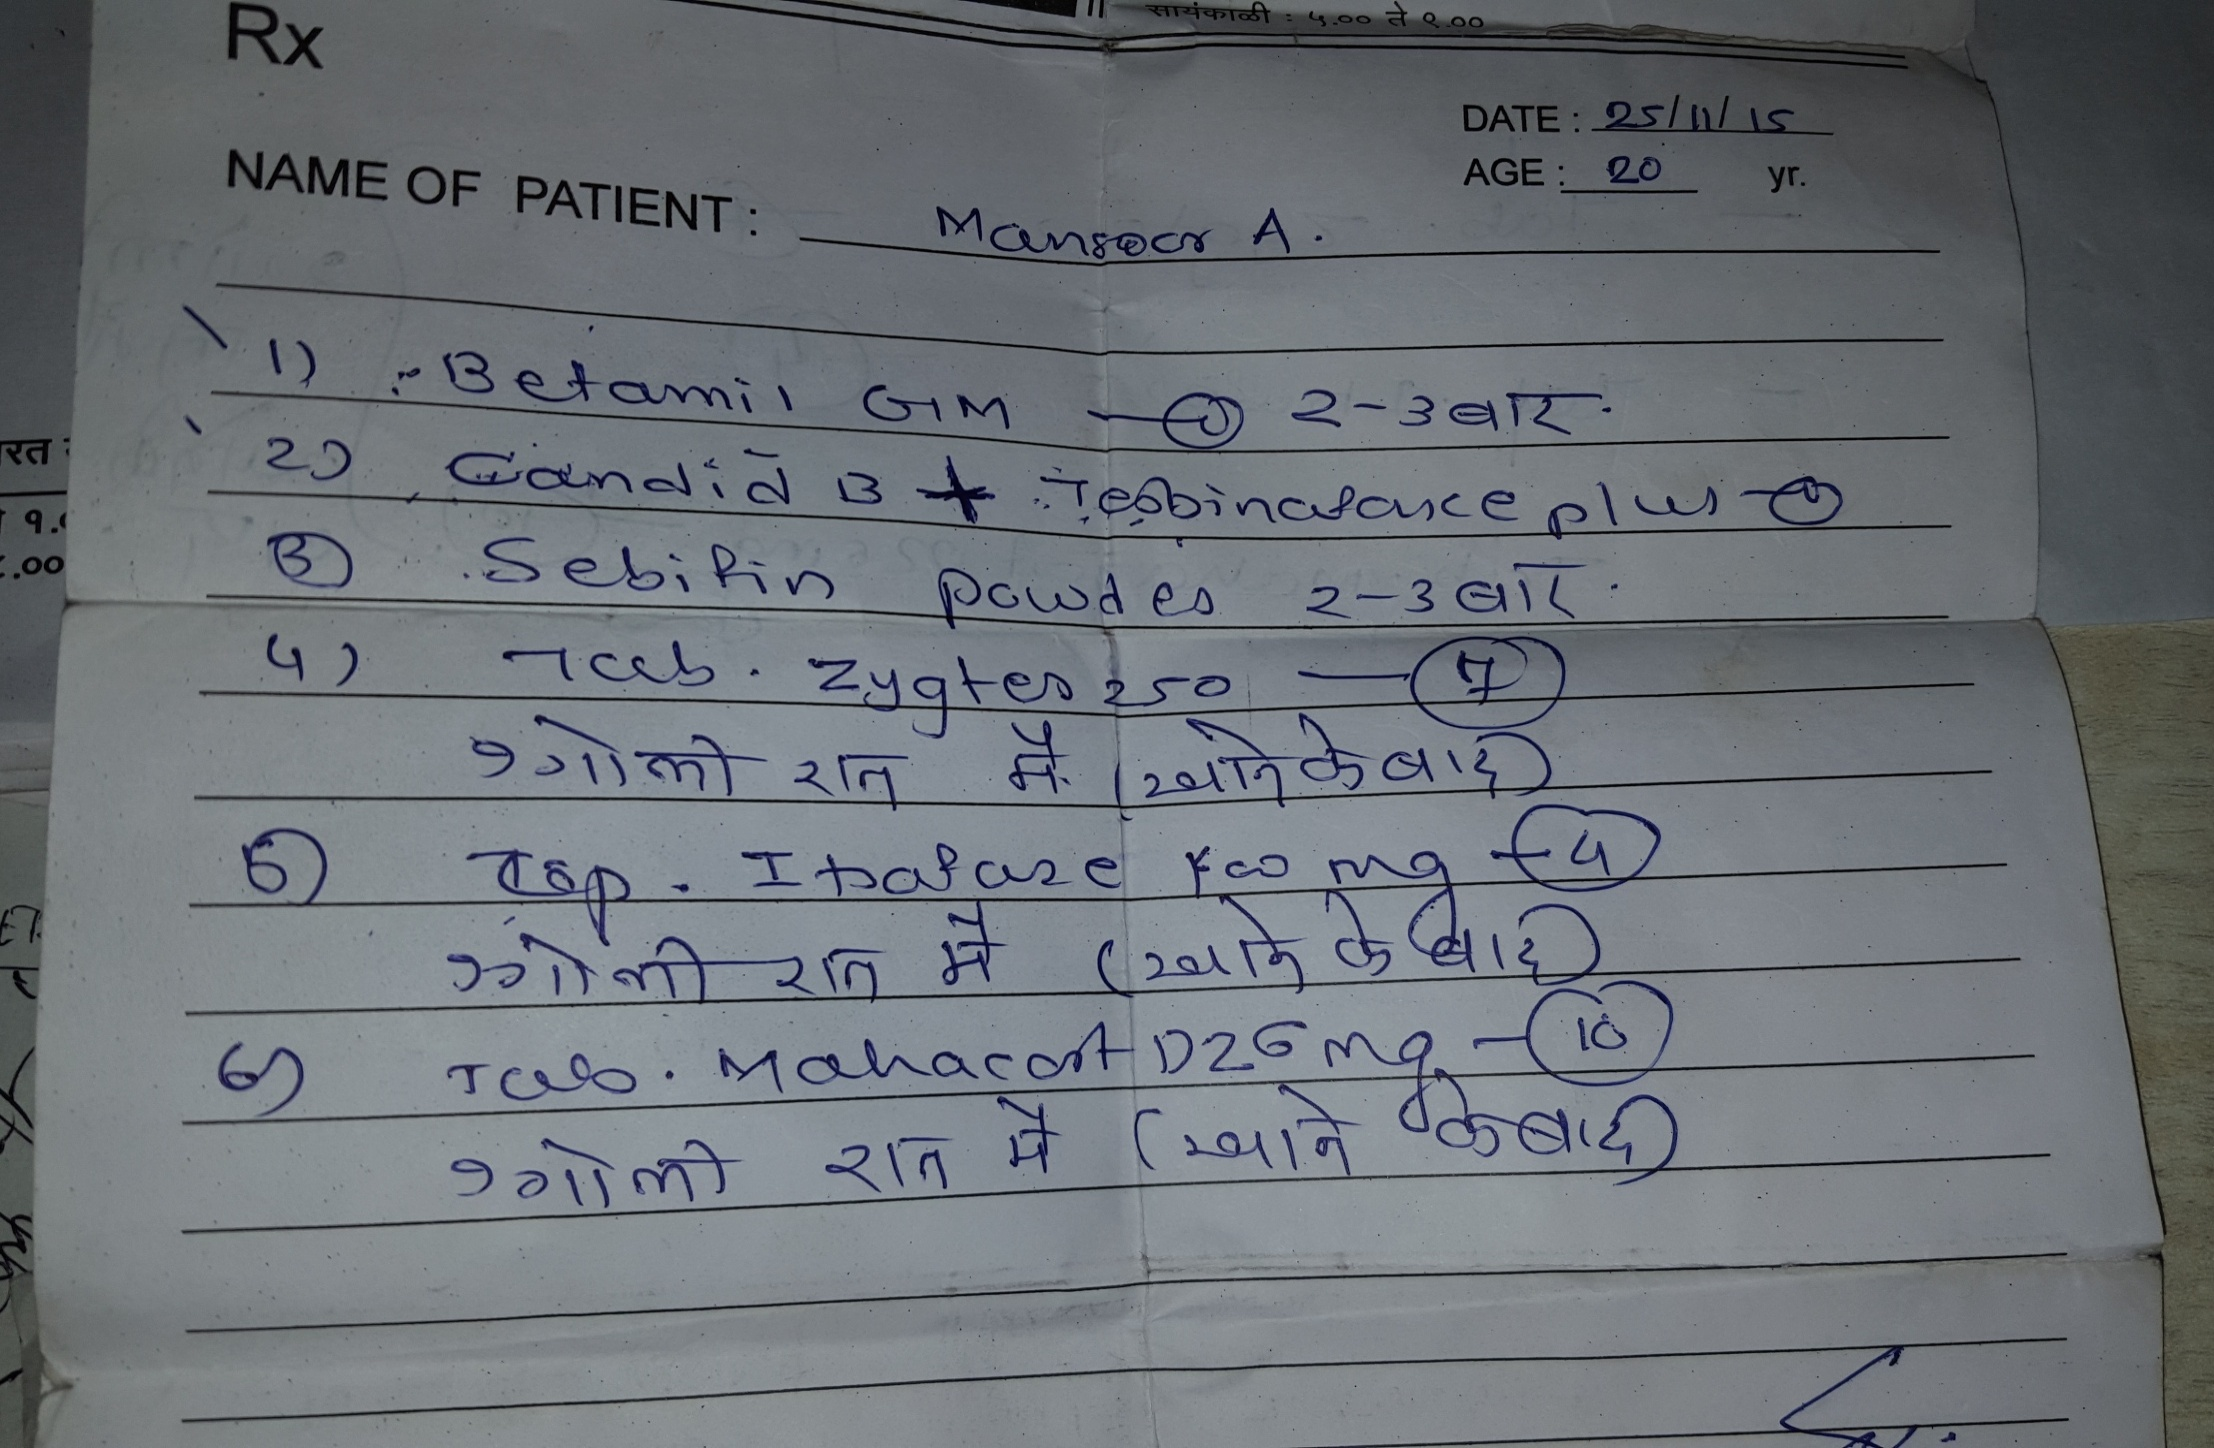 सायंकाळी : ५.०० ते ९.००
Rx
DATE : 25/11/15
AGE : 20 yr.
NAME OF PATIENT : Mansoor A.
1) Betamil GM — ① २-३ बार.
2) Candid B + Terbinaforce plus — ①
3) Sebifin powder २-३ बार.
4) Tab. Zygter 250 — 7
१ गोली रात में (खाने के बाद)
5) Cap. Itrafaze mg — 4
१ गोली रात में (खाने के बाद)
6) Tab. Mahacort DZ 6 mg — 10
१ गोली रात में (खाने के बाद)
रत